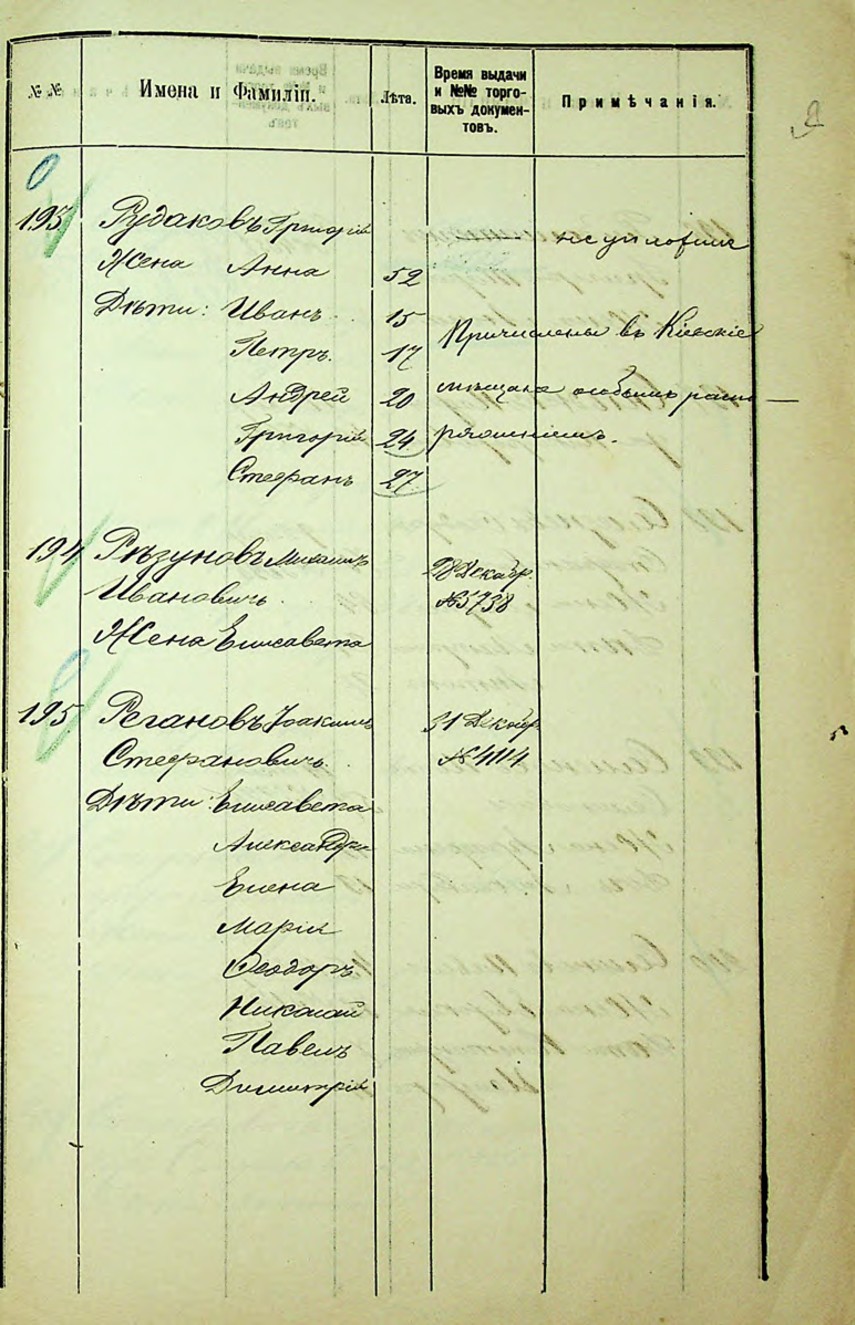 № №
Имена и Фамиліи.
Лѣта.
Время выдачи
и №№ торго-
выхъ докумен-
товъ.
Примѣчанія.
193 Рудаковъ Григорій
Жена Анна 52
Дѣти: Иванъ 15
Петръ. 17
Андрей 20
Григорій 24
Стефанъ 27
Причислены въ Кіевскіе
мѣщане особымъ распо
ряженіемъ.
194 Рѣзуновъ Михаилъ 28 Декабр.
Ивановичъ. №5738
Жена Елисавета
195 Регановъ Іоакимъ 31 Декабр
Стефановичъ. №4114
Дѣти: Елисавета
Александръ
Елена
Марія
Ѳеодоръ
Николай
Павелъ
Димитрій